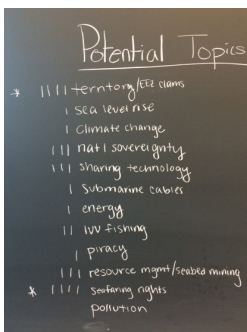 Potential Topics
* |||| territory/EEZ claims
| sea level rise
| climate change
||| nat'l sovereignty
||| sharing technology
| submarine cables
| energy
|| IUU fishing
| piracy
||| resource mgmt/seabed mining
* |||| seafaring rights
pollution